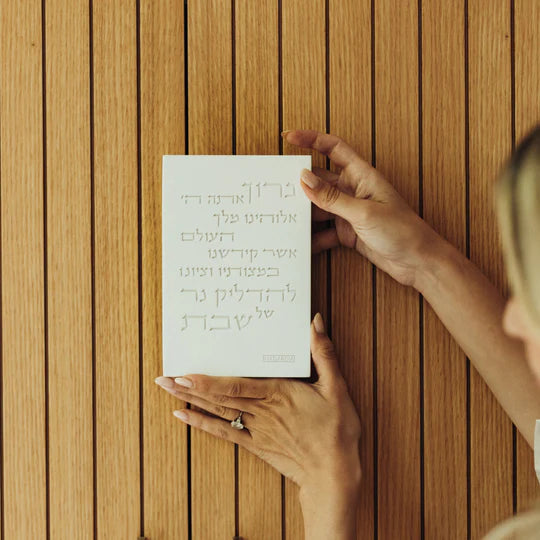 ברוך אתה ה׳
אלוהינו מלך
העולם
אשר קידשנו
במצוותיו וציונו
להדליק נר
של שבת